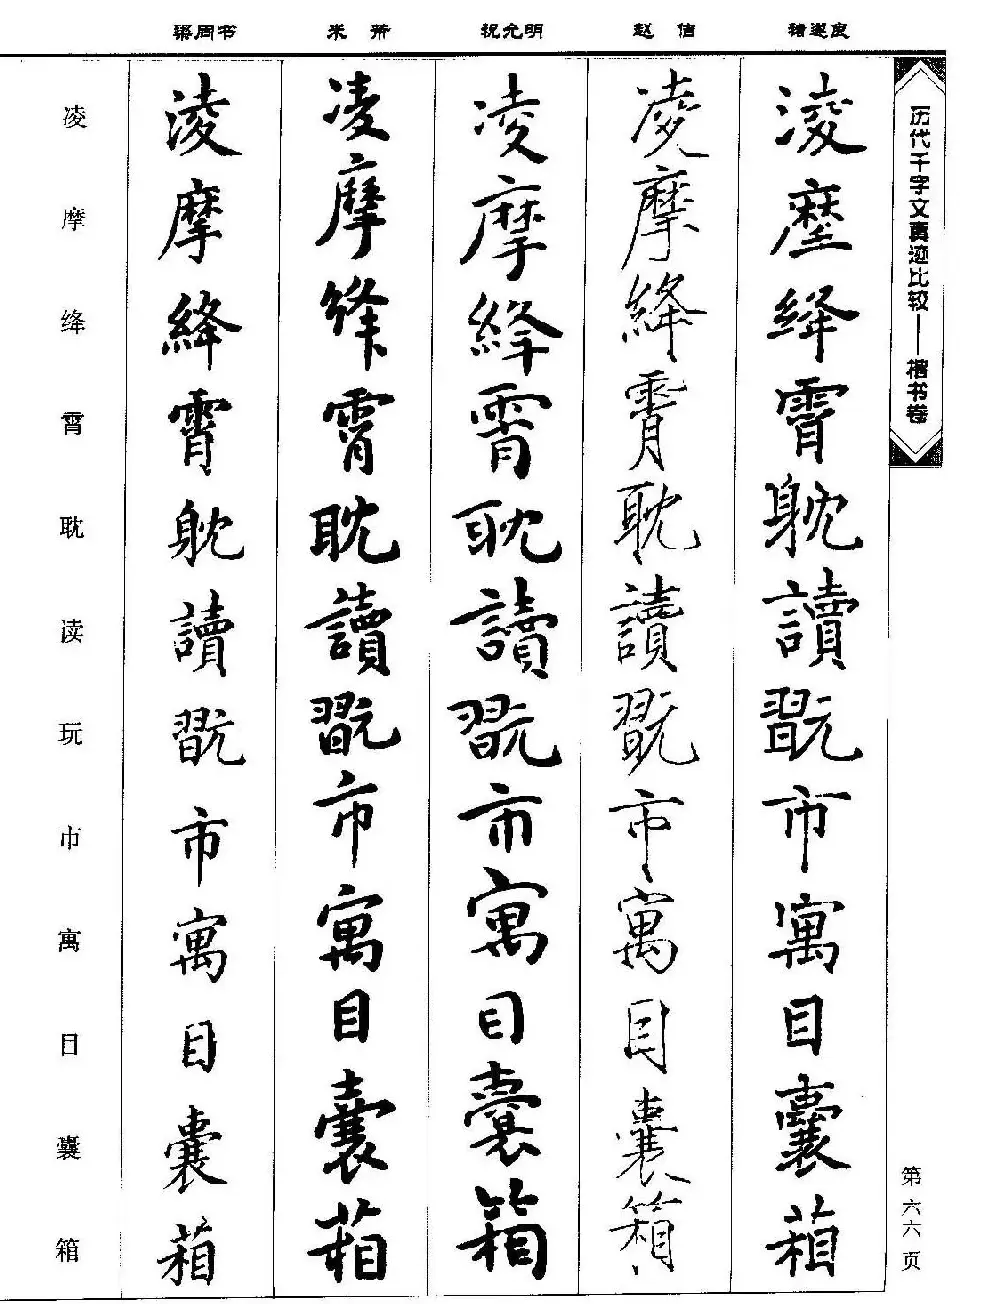 历代千字文真迹比较——楷书卷
第六六页
褚遂良
淩摩絳霄躭讀翫市寓目囊葙
赵佶
凌摩絳霄耽讀翫市寓目囊箱
祝允明
凌摩絳霄耽讀翫市寓目囊箱
米芾
凌摩絳霄耽讀翫市寓目囊葙
梁同书
淩摩絳霄躭讀翫市寓目囊葙
凌摩绛霄耽读玩市寓目囊箱